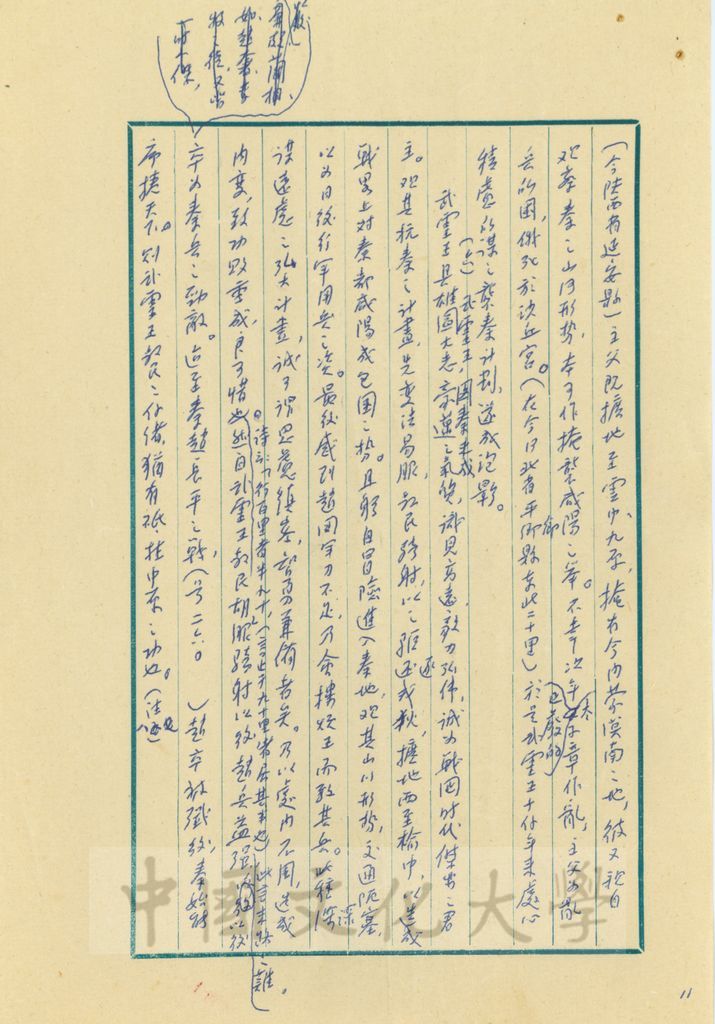 (今陝西省延安縣)主父既擴地至雲中、九原,擁有今內蒙漠南之地,彼又親自
觀察秦之山河形勢,本可作掩襲咸陽之舉。不幸次年已廢的太子章作亂,主父為亂
兵所困,餓死於沙丘宮。(在今河北省平鄉縣東北二十里)於是武靈王十餘年來處心
積慮所謀之襲秦計劃,遂成泡影。
(六)武靈王圖秦未成
武靈王具雄圖大志,豪邁之氣魄,識見高遠,毅力弘偉,誠為戰國時代傑出之君
主。觀其抗秦之計畫,先變法易服,教民騎射,以之驅逐戎狄,擴地西至榆中,以造成
戰略上對秦都咸陽成包圍之勢。且躬自冒險進入秦地,觀其山川形勢,交通阨塞,
以為日後行軍用兵之次。最後感到趙國軍力不足,乃會樓煩王而致其兵。此種深
謀遠慮之弘大計畫,誠可謂思慮縝密,智勇兼備者矣。乃以處內不周,造成
內變,致功敗垂成,良可惜也。詩云:「行百里者半九十,(言至九十里省居其半也)此言末路之難。
然自武靈王教民胡服騎射以後,趙兵益強,以後
卒為秦兵之勁敵。迨至秦趙長平之戰,(前二六〇 )趙卒被殲後,秦始財
席捲天下。則武靈王教民之餘緒,猶有砥柱中原之功也。(註八)
再藺相
如趙奢李
牧
11
中國文化大學